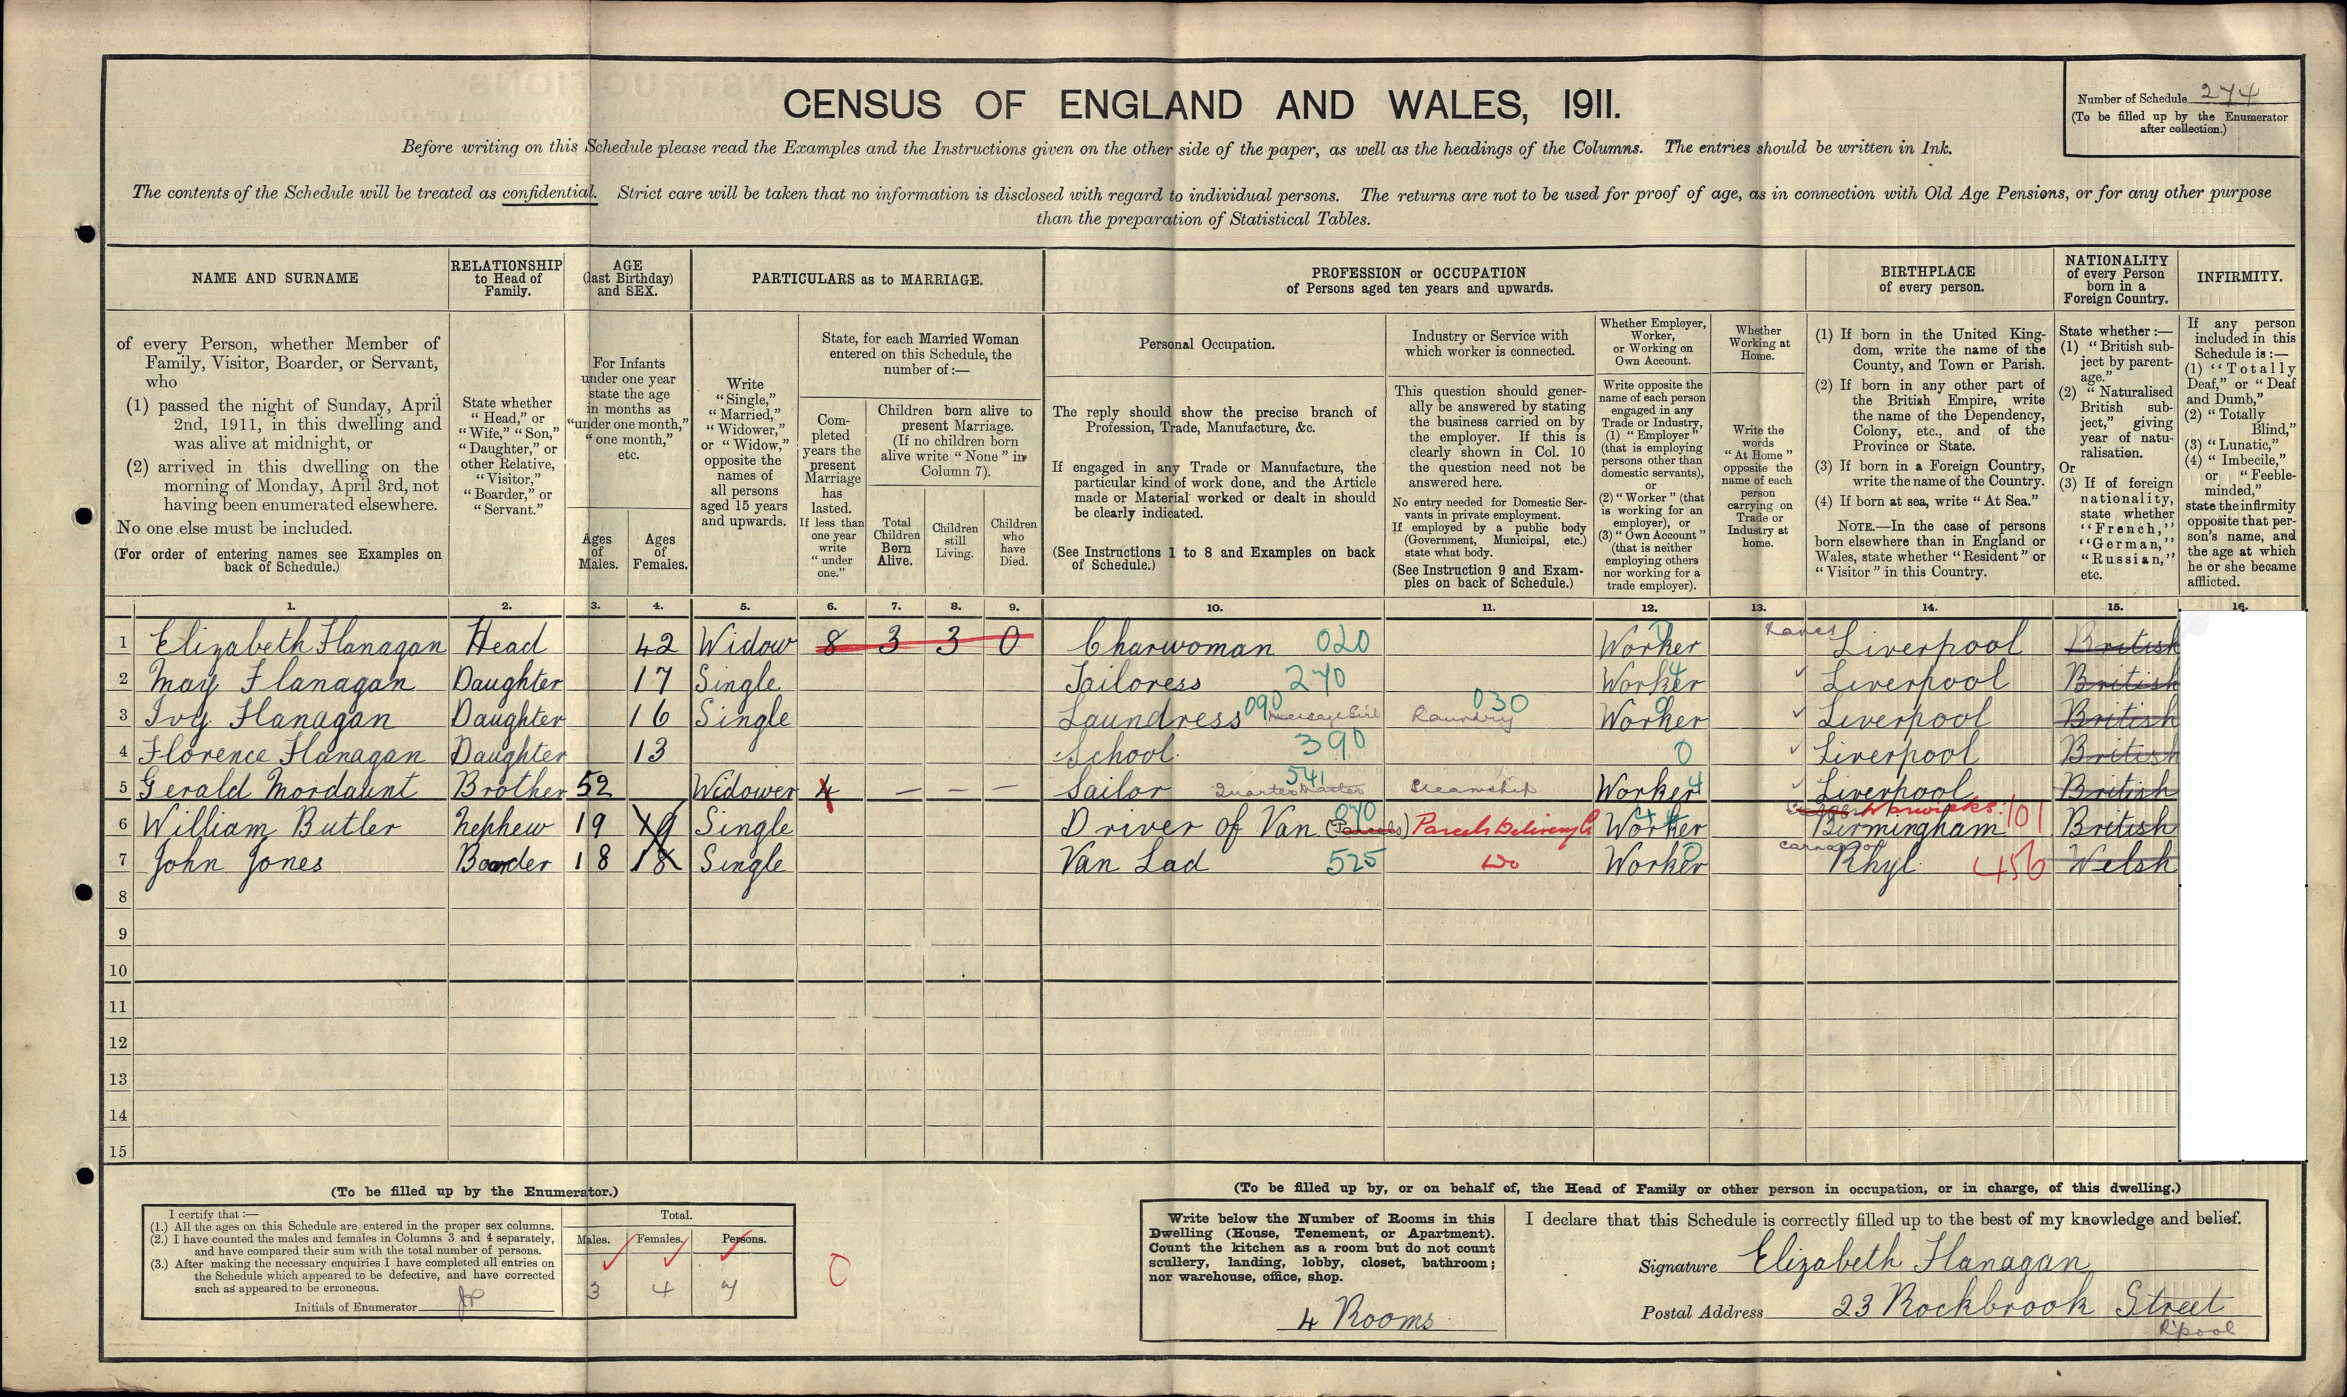 CENSUS OF ENGLAND AND WALES, 1911.
Number of Schedule 274
(To be filled up by the Enumerator
after collection.)
Before writing on this Schedule please read the Examples and the Instructions given on the other side of the paper, as well as the headings of the Columns. The entries should be written in Ink.
The contents of the Schedule will be treated as confidential. Strict care will be taken that no information is disclosed with regard to individual persons. The returns are not to be used for proof of age, as in connection with Old Age Pensions, or for any other purpose
than the preparation of Statistical Tables.
NAME AND SURNAME
RELATIONSHIP
to Head of
Family.
AGE
(last Birthday)
and SEX.
PARTICULARS as to MARRIAGE.
PROFESSION or OCCUPATION
of Persons aged ten years and upwards.
BIRTHPLACE
of every person.
NATIONALITY
of every Person
born in a
Foreign Country.
INFIRMITY.
of every Person, whether Member of
Family, Visitor, Boarder, or Servant,
who
(1) passed the night of Sunday, April
2nd, 1911, in this dwelling and
was alive at midnight, or
(2) arrived in this dwelling on the
morning of Monday, April 3rd, not
having been enumerated elsewhere.
No one else must be included.
(For order of entering names see Examples on
back of Schedule.)
State whether
"Head," or
"Wife," "Son,"
"Daughter," or
other Relative,
"Visitor,"
"Boarder," or
"Servant."
For Infants
under one year
state the age
in months as
"under one month,"
"one month,"
etc.
Ages
of
Males.
Ages
of
Females.
Write
"Single,"
"Married,"
"Widower,"
or "Widow,"
opposite the
names of
all persons
aged 15 years
and upwards.
State, for each Married Woman
entered on this Schedule, the
number of:—
Com-
pleted
years the
present
Marriage
has
lasted.
If less than
one year
write
"under
one."
Children born alive to
present Marriage.
(If no children born
alive write "None" in
Column 7).
Total
Children
Born
Alive.
Children
still
Living.
Children
who
have
Died.
Personal Occupation.
The reply should show the precise branch of
Profession, Trade, Manufacture, &c.
If engaged in any Trade or Manufacture, the
particular kind of work done, and the Article
made or Material worked or dealt in should
be clearly indicated.
(See Instructions 1 to 8 and Examples on back
of Schedule.)
Industry or Service with
which worker is connected.
This question should gener-
ally be answered by stating
the business carried on by
the employer. If this is
clearly shown in Col. 10
the question need not be
answered here.
No entry needed for Domestic Ser-
vants in private employment.
If employed by a public body
(Government, Municipal, etc.)
state what body.
(See Instruction 9 and Exam-
ples on back of Schedule.)
Whether Employer,
Worker,
or Working on
Own Account.
Write opposite the
name of each person
engaged in any
Trade or Industry,
(1) "Employer"
(that is employing
persons other than
domestic servants),
or
(2) "Worker" (that
is working for an
employer), or
(3) "Own Account"
(that is neither
employing others
nor working for a
trade employer).
Whether
Working at
Home.
Write the
words
"At Home"
opposite the
name of each
person
carrying on
Trade or
Industry at
home.
(1) If born in the United King-
dom, write the name of the
County, and Town or Parish.
(2) If born in any other part of
the British Empire, write
the name of the Dependency,
Colony, etc., and of the
Province or State.
(3) If born in a Foreign Country,
write the name of the Country.
(4) If born at sea, write "At Sea."
NOTE.—In the case of persons
born elsewhere than in England or
Wales, state whether "Resident" or
"Visitor" in this Country.
State whether:—
(1) "British sub-
ject by parent-
age."
(2) "Naturalised
British sub-
ject," giving
year of natu-
ralisation.
Or
(3) If of foreign
nationality,
state whether
"French,"
"German,"
"Russian,"
etc.
If any person
included in this
Schedule is:—
(1) "Totally
Deaf," or "Deaf
and Dumb,"
(2) "Totally
Blind,"
(3) "Lunatic,"
(4) "Imbecile,"
or "Feeble-
minded,"
state the infirmity
opposite that per-
son's name, and
the age at which
he or she became
afflicted.
1. 2. 3. 4. 5. 6. 7. 8. 9. 10. 11. 12. 13. 14. 15. 16.
1 Elizabeth Flanagan Head 42 Widow 8 3 3 0 Charwoman 020 Worker Lancs Liverpool British
2 May Flanagan Daughter 17 Single Tailoress 270 Worker 4 Liverpool British
3 Ivy Flanagan Daughter 16 Single Laundress 090 Message Girl Laundry 030 Worker Liverpool British
4 Florence Flanagan Daughter 13 School 390 0 Liverpool British
5 Gerald Mordaunt Brother 52 Widower 4 — — — Sailor Quarter Master 541 Steamship Worker 4 Liverpool British
6 William Butler Nephew 19 19 Single Driver of Van (Parcels) 070 Parcels Delivery Co Worker Warwicks: Birmingham 101 British
7 John Jones Boarder 18 18 Single Van Lad 525 Do Worker 0 Carnarvon Rhyl 456 Welsh
8
9
10
11
12
13
14
15
(To be filled up by the Enumerator.)
I certify that:—
(1.) All the ages on this Schedule are entered in the proper sex columns.
(2.) I have counted the males and females in Columns 3 and 4 separately,
and have compared their sum with the total number of persons.
(3.) After making the necessary enquiries I have completed all entries on
the Schedule which appeared to be defective, and have corrected
such as appeared to be erroneous.
Initials of Enumerator
Total.
Males. Females. Persons.
3 4 7
0
(To be filled up by, or on behalf of, the Head of Family or other person in occupation, or in charge, of this dwelling.)
Write below the Number of Rooms in this
Dwelling (House, Tenement, or Apartment).
Count the kitchen as a room but do not count
scullery, landing, lobby, closet, bathroom;
nor warehouse, office, shop.
4 Rooms
I declare that this Schedule is correctly filled up to the best of my knowledge and belief.
Signature Elizabeth Flanagan
Postal Address 23 Rockbrook Street
L'pool